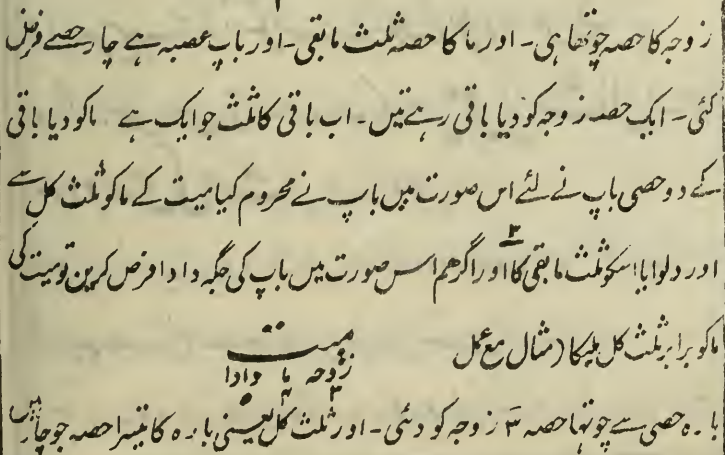 زوجہ کا حصہ چوتھا ہی - اور ما کا حصہ ثلث مابقی - اور باپ عصبہ ہے چار حصے فرض
کئی - ایک حصہ زوجہ کو دیا باقی رہے تیں - اب باقی کا ثلث جو ایک ہے ماکو دیا باقی
کے دو حصی باپ نے لئے اس صورت میں باپ نے محروم کیا میت کے ماکو ثلث کل سے
اور دلوایا اسکو ثلث مابقی کا اور اگر ہم اس صورت میں باپ کی جگہ دادا فرض کرین تو میت کی
ماکو برابر ثلث کل ملیکا (مثال مع عمل
میت ۱۲
زوجہ ما دادا
۳ ۴ ۵
بارہ حصی سے چوتہا حصہ ۳ زوجہ کو دئی - اور ثلث کل یعنی بارہ کا تیسرا حصہ جو چار